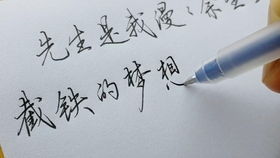 先生是我漫漫余生
截铁的梦想